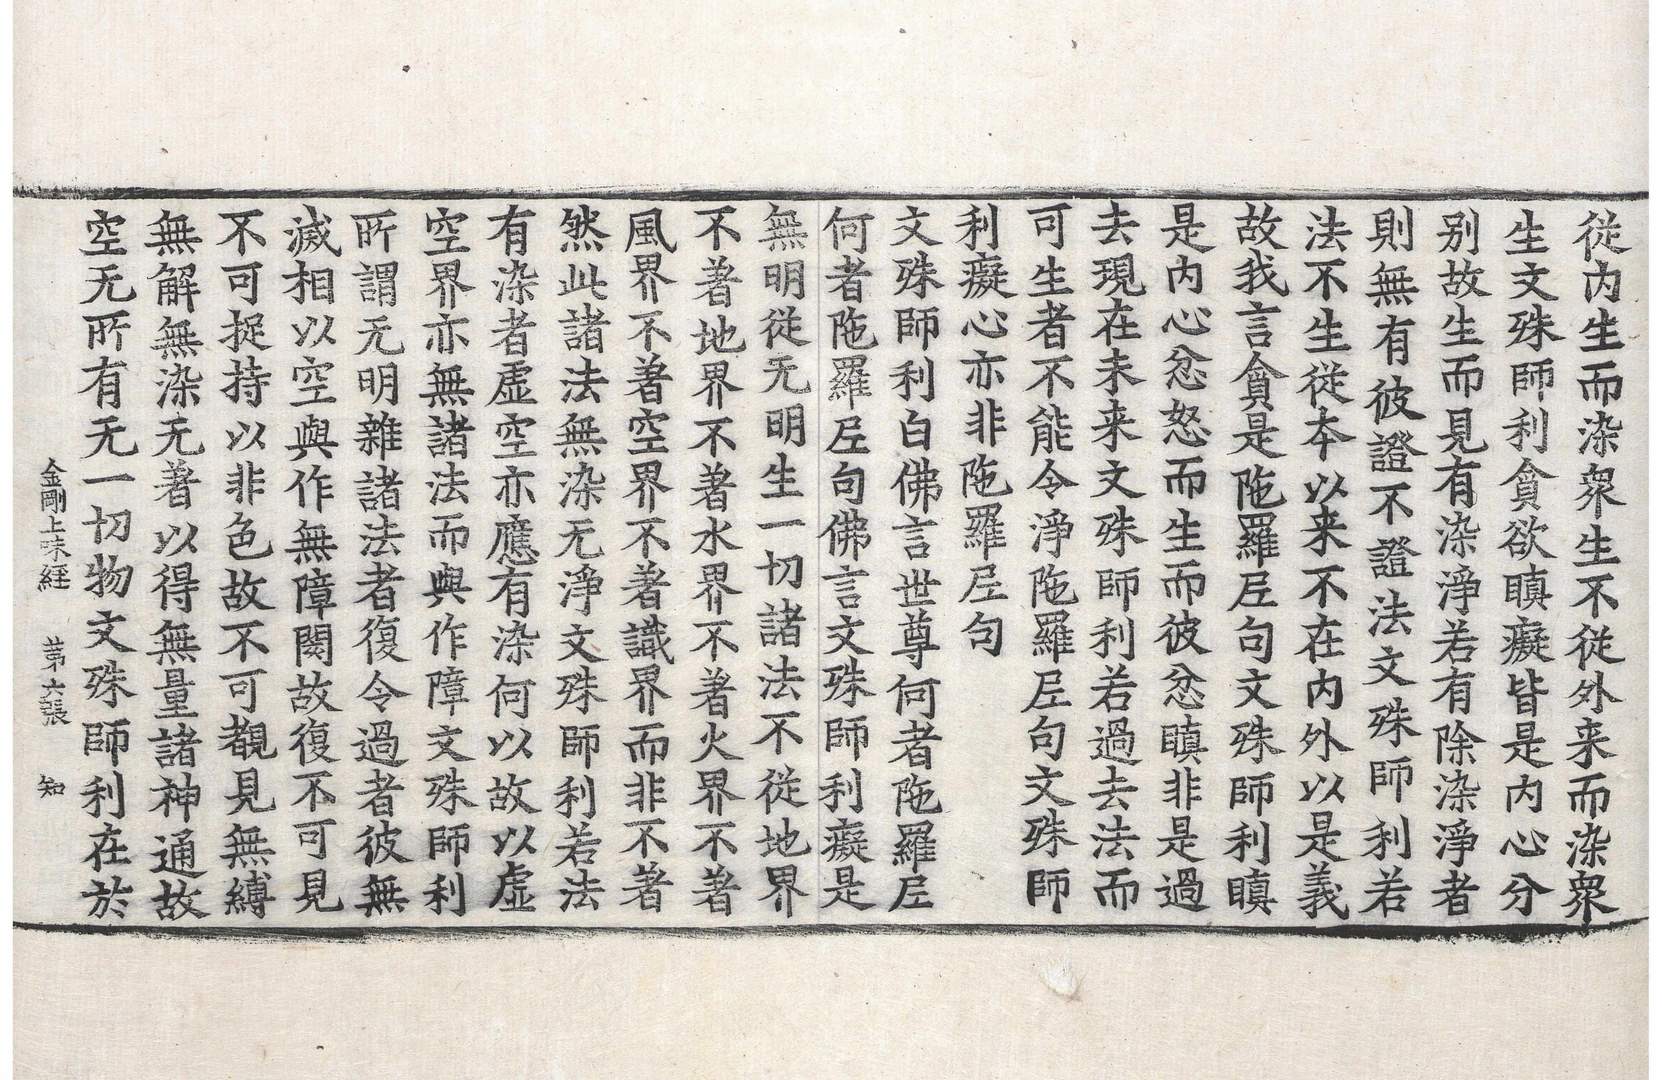 從内生而染衆生不從外来而染衆
生文殊師利貪欲瞋癡皆是内心分
别故生而見有染淨若有除染淨者
則無有彼證不證法文殊師利若
法不生從本以来不在内外以是義
故我言貪是陁羅𡰱句文殊師利瞋
是内心忿怒而生而彼忿瞋非是過
去現在未来文殊師利若過去法而
可生者不能令淨陁羅𡰱句文殊師
利癡心亦非陁羅𡰱句
文殊師利白佛言世尊何者陁羅𡰱
何者陁羅𡰱句佛言文殊師利癡是
無明從无明生一切諸法不從地界
不著地界不著水界不著火界不著
風界不著空界不著識界而非不著
然此諸法無染无淨文殊師利若法
有染者虚空亦應有染何以故以虚
空界亦無諸法而與作障文殊師利
所謂无明雜諸法者復令過者彼無
滅相以空與作無障閡故復不可見
不可捉持以非色故不可覩見無縛
無解無染无著以得無量諸神通故
空无所有无一切物文殊師利在於
金剛上味経 苐六張 知